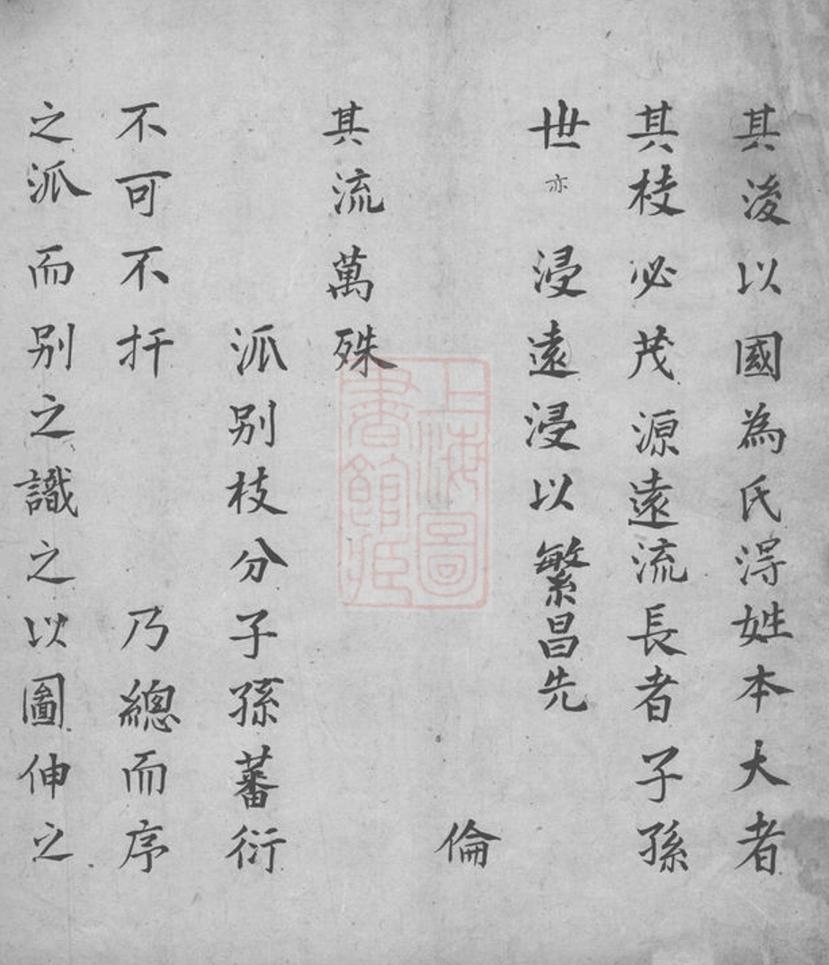 其後以國為氏淂姓本大者
其枝必茂源遠流長者子孫
世亦浸遠浸以繁昌先
倫
其流萬殊
派别枝分子孫蕃衍
不可不扞乃總而序
之派而别之識之以圖伸之
上海圖書館藏